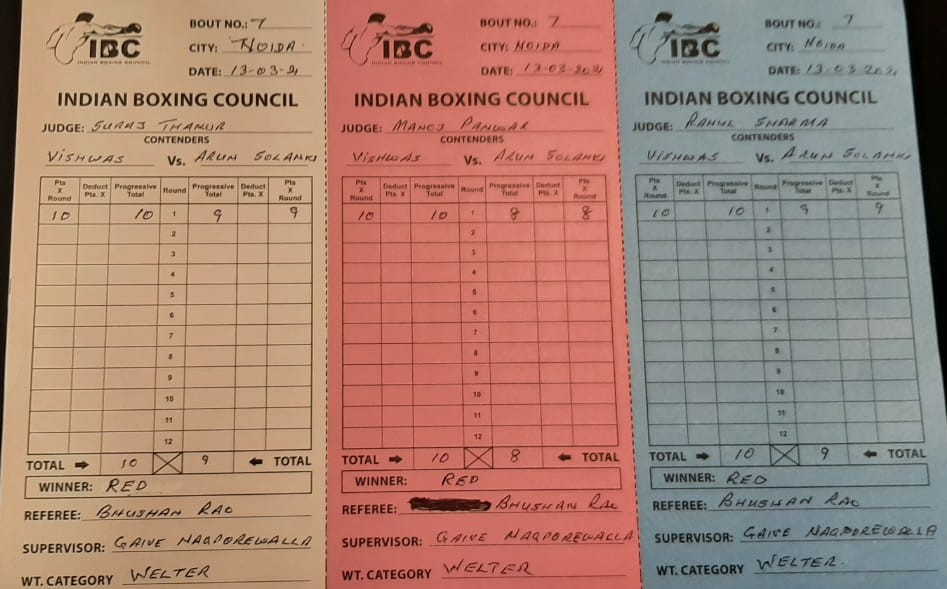 IBC
INDIAN BOXING COUNCIL
BOUT NO.: 7
CITY: NOIDA.
DATE: 13-03-21
INDIAN BOXING COUNCIL
JUDGE: SURAJ THAKUR
CONTENDERS
VISHWAS Vs. ARUN SOLANKI
Pts X Round Deduct Pts. X Progressive Total Round Progressive Total Deduct Pts. X Pts X Round
10 10 1 9 9
2
3
4
5
6
7
8
9
10
11
12
TOTAL 10 9 TOTAL
WINNER: RED
REFEREE: BHUSHAN RAO
SUPERVISOR: GAIVE NAGPOREWALLA
WT. CATEGORY WELTER
IBC
INDIAN BOXING COUNCIL
BOUT NO.: 7
CITY: NOIDA
DATE: 13-03-2021
INDIAN BOXING COUNCIL
JUDGE: MANOJ PANWAR
CONTENDERS
VISHWAS Vs. ARUN SOLANKI
Pts X Round Deduct Pts. X Progressive Total Round Progressive Total Deduct Pts. X Pts X Round
10 10 1 8 8
2
3
4
5
6
7
8
9
10
11
12
TOTAL 10 8 TOTAL
WINNER: RED
REFEREE: BHUSHAN RAO
SUPERVISOR: GAIVE NAGPOREWALLA
WT. CATEGORY WELTER
IBC
INDIAN BOXING COUNCIL
BOUT NO.: 7
CITY: NOIDA
DATE: 13-03-2021
INDIAN BOXING COUNCIL
JUDGE: RAHUL SHARMA
CONTENDERS
VISHWAS Vs. ARUN SOLANKI
Pts X Round Deduct Pts. X Progressive Total Round Progressive Total Deduct Pts. X Pts X Round
10 10 1 9 9
2
3
4
5
6
7
8
9
10
11
12
TOTAL 10 9 TOTAL
WINNER: RED
REFEREE: BHUSHAN RAO
SUPERVISOR: GAIVE NAGPOREWALLA
WT. CATEGORY WELTER.